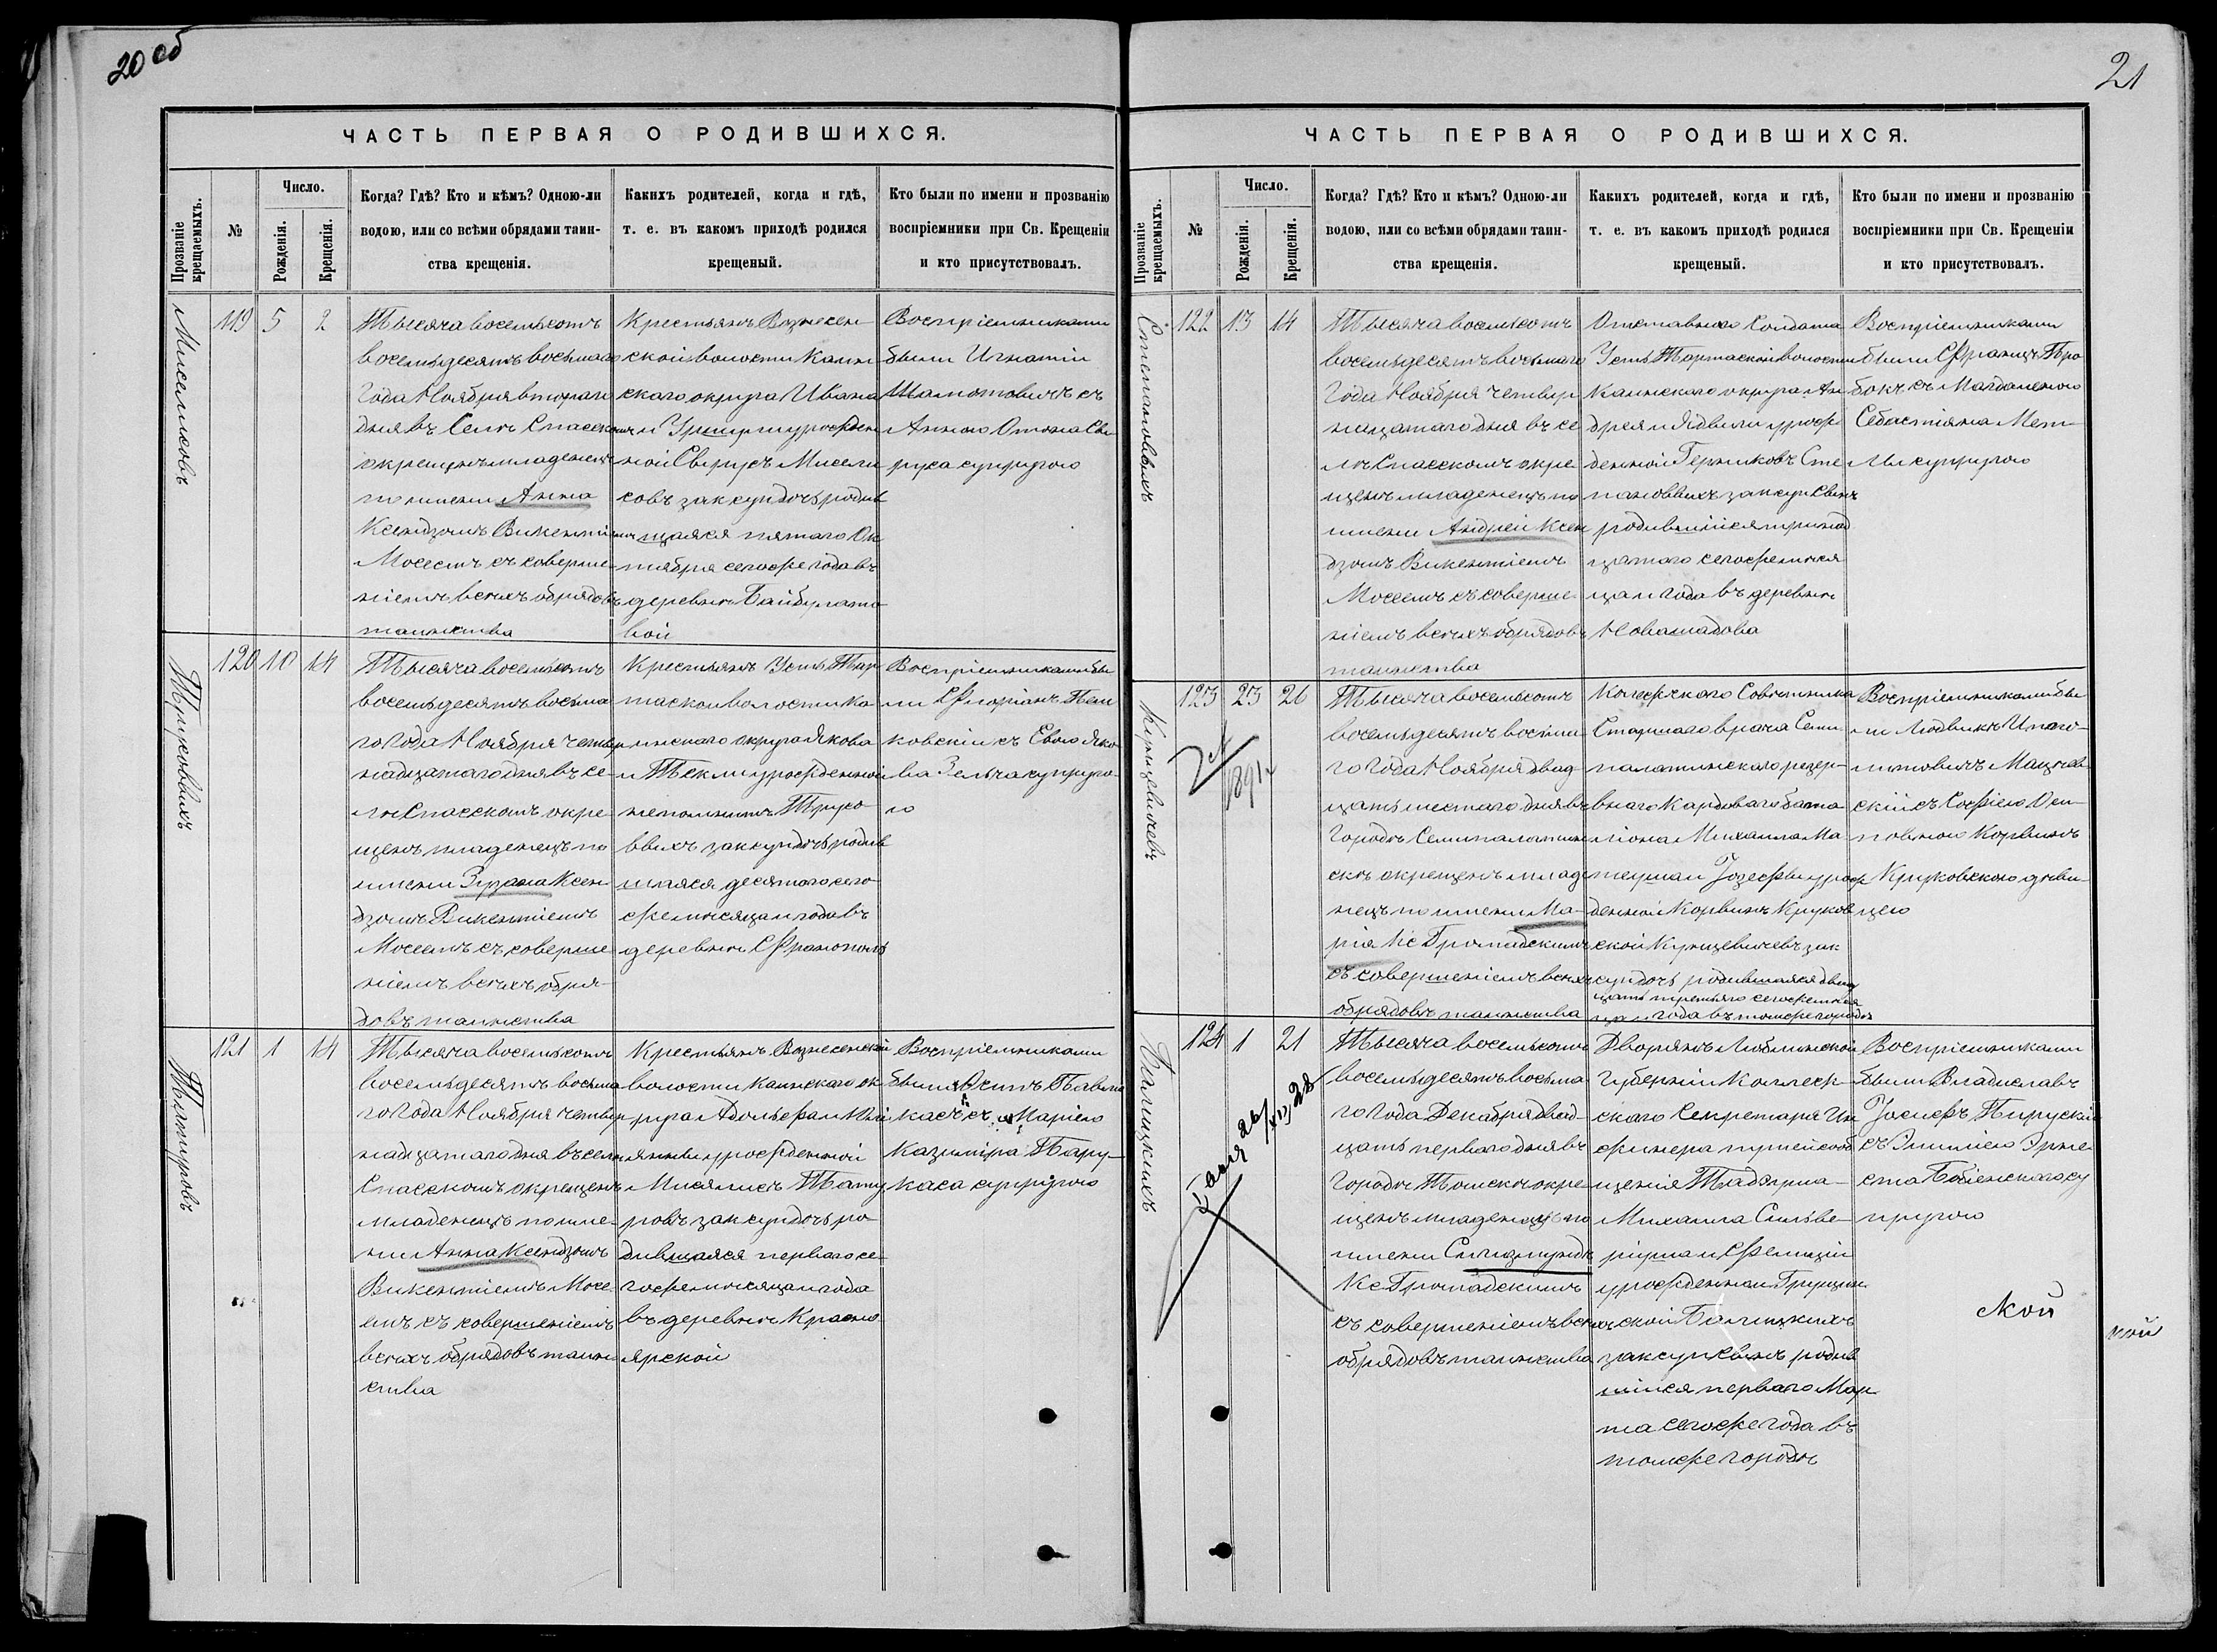 20 об
ЧАСТЬ ПЕРВАЯ О РОДИВШИХСЯ.
Прозваніе крещаемыхъ.
№
Число.
Рожденія.
Крещенія.
Когда? Гдѣ? Кто и кѣмъ? Одною-ли
водою, или со всѣми обрядами таин-
ства крещенія.
Какихъ родителей, когда и гдѣ,
т. е. въ какомъ приходѣ родился
крещеный.
Кто были по имени и прозванію
воспріемники при Св. Крещеніи
и кто присутствовалъ.
119 5 2
Тысяча восемьсотъ
восемьдесятъ восьмаго
Года Ноября втораго
дня въ Селѣ Спасскомъ
окрещенъ младенецъ
по имени Анна
Ксендзомъ Викентіемъ
Мосеемъ съ соверше-
ніемъ всѣхъ обрядовъ
таинства
Крестьянъ Вознесен-
ской волости Каин
скаго округа Ивана
и урожден
ной Свирусъ Мисели
ковъ зак супдочь родив
шаяся пятаго Ок
тября сегоже года въ
деревнѣ Байбулато
вой
Воспріемниками
были Игнатій
Шамотовичъ съ
Анною Антона Сви
руса супругою
Мисемковъ
120 10 14
Тысяча восемьсотъ
восемьдесятъ восьма
го Года Ноября четыр
надцатаго дня въ се-
лѣ Спасскомъ окре
щенъ младенецъ по
имени Зузана Ксен
дзомъ Викентіемъ
Мосеемъ съ соверше
ніемъ всѣхъ обря-
довъ таинства
Крестьянъ Усть Тар
таской волости Ка
инскаго округа Якова
и Теклы урожденной
непомнитъ Трухо
выхъ зак супдочь родив
шаяся десятаго сего
же мѣсяца и года въ
деревнѣ Франополь
Воспріемниками бы
ли Флоріанъ
ковскій съ Евою Яко
ва супруго
ю
Труховыхъ
121 1 14
Тысяча восемьсотъ
восемьдесятъ восьма
го Года Ноября четыр
надцатаго дня въ селѣ
Спасскомъ окрещенъ
младенецъ по име-
ни Анна Ксендзомъ
Викентіемъ Мосе-
емъ съ совершеніемъ
всѣхъ обрядовъ таин
ства
Крестьянъ Вознесенской
волости Каинскаго ок
руга Адольфа и Юлі
янны урожденной
Тату
ровъ зак супдочь ро
дившаяся перваго се
гоже мѣсяца и года
въ деревнѣ Красно
ярской
Воспріемниками
были Осипъ
касъ съ Маріею
Казиміра Пару-
каса супругою
21
ЧАСТЬ ПЕРВАЯ О РОДИВШИХСЯ.
Прозваніе крещаемыхъ.
№
Число.
Рожденія.
Крещенія.
Когда? Гдѣ? Кто и кѣмъ? Одною-ли
водою, или со всѣми обрядами таин-
ства крещенія.
Какихъ родителей, когда и гдѣ,
т. е. въ какомъ приходѣ родился
крещеный.
Кто были по имени и прозванію
воспріемники при Св. Крещеніи
и кто присутствовалъ.
Степановыхъ
122 13 14
Тысяча восемьсотъ
восемьдесятъ восьмаго
Года Ноября четыр
надцатаго дня въ се
лѣ Спасскомъ окре
щенъ младенецъ по
имени Андрей Ксен
дзомъ Викентіемъ
Мосеемъ съ соверше
ніемъ всѣхъ обрядовъ
таинства
Отставнаго Солдата
Усть Тартаской волости
Каинскаго округа Ан
дрея и Ядвиги урож
денной Герниковъ Сте
пановыхъ зак суп сынъ
родившійся тринад
цатаго сегоже мѣся
ца и года въ деревнѣ
Воспріемниками
были Францъ Тро
бокъ съ Магдаленою
Себастіяна Мет-
лы супругою
Куницевичевъ
123 23 26
1891
Тысяча восемьсотъ
восемьдесятъ восьма
го Года Ноября двад
цать шестаго дня въ
Городѣ Семипалатин
скѣ окрещенъ младе
нецъ по имени Ма-
рія Кс Громадскимъ
съ совершеніемъ всѣхъ
обрядовъ таинства
Колежскаго Совѣтника
Старшаго врача Семи
палатинскаго резер-
внаго Кадроваго бата
ліона Михаила Ма
теуша и Іозефы урож
денной Корвинъ Круков
ской Куницевичевъ зак
супдочь родившаяся двад
цать третьяго сегоже мѣся
ца и года въ томже городѣ
Воспріемниками бы
ли Людвикъ Иппо-
литовичъ Мацѣев
скій съ Софіею Оси-
повною Корвинъ
Круковскою дѣви-
цею
Балицкихъ
124 1 21
Тысяча восемьсотъ
восемьдесятъ восьма
го Года Декабря двад-
цать перваго дня въ
Городѣ Томскѣ окре
щенъ младенецъ по
имени Сигизмундъ
Кс Громадскимъ
съ совершеніемъ всѣхъ
обрядовъ таинства
Дворянъ Люблинской
Губерніи Коллеж-
скаго Секретаря Ин
женера путей сооб
щенія Тадеуша-
Михаила Сильве-
ріуша и Фелиціи
урожденной Грущин
ской Балицкихъ
зак суп сынъ родив
шійся перваго Мар
та сегоже года въ
томже городѣ
Воспріемниками
были Владиславъ
Іосифъ Пируский
съ Эмиліею Эрне
ста Бобіенскаго су
пругою